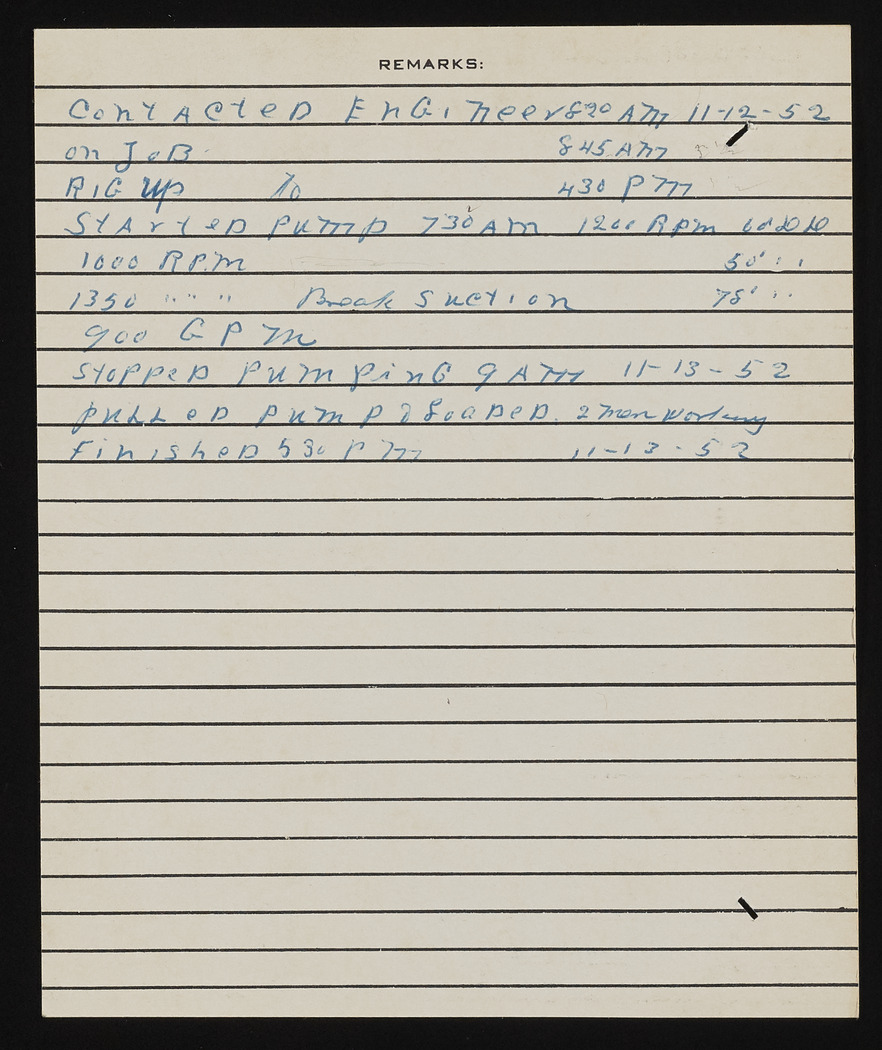 REMARKS:
Contacted Engineer 820 AM 11-12-52
on Job 845 AM
Rig up To 430 PM
Started Pump 730 AM 1200 RPM
1000 RPM 50' " "
1350 " " " Break Suction 78' " "
900 GPM
Stopped Pumping 9 AM 11-13-52
Pulled Pump & Loaded. 2 men working
Finished 530 PM 11-13-52